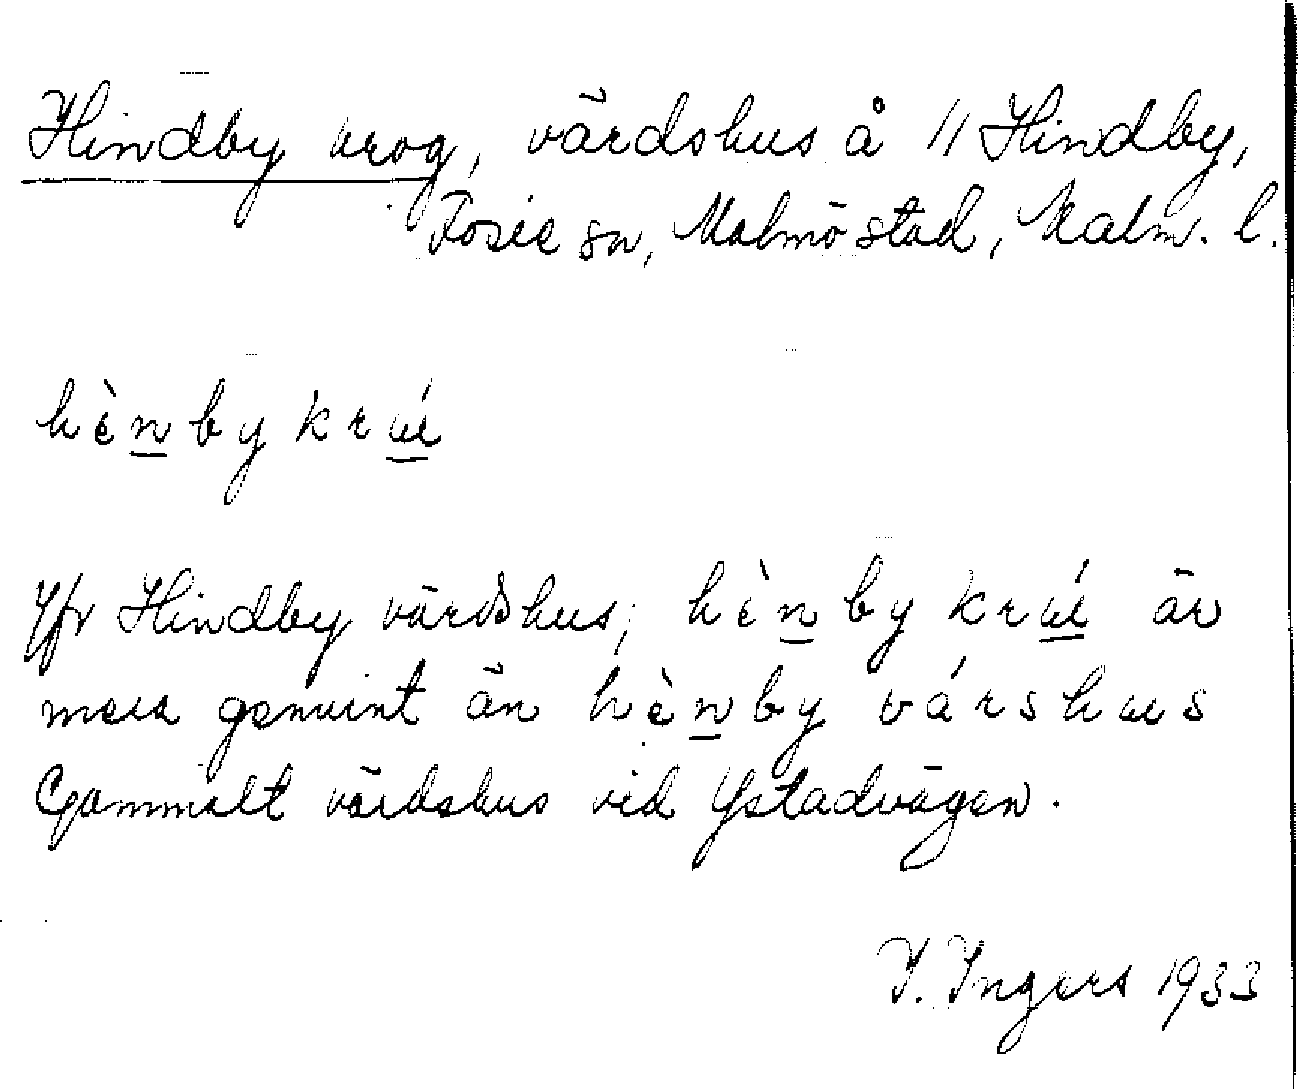 Hindby krog, värdshus å 11 Hindby,
Fosie sn, Malmö stad, Malm. l.
hènby krúi
Jfr Hindby värdshus; hènby krúi är
mera genuint än hènby várshus
Gammalt värdshus vid Ystadvägen.
I. Ingers 1933